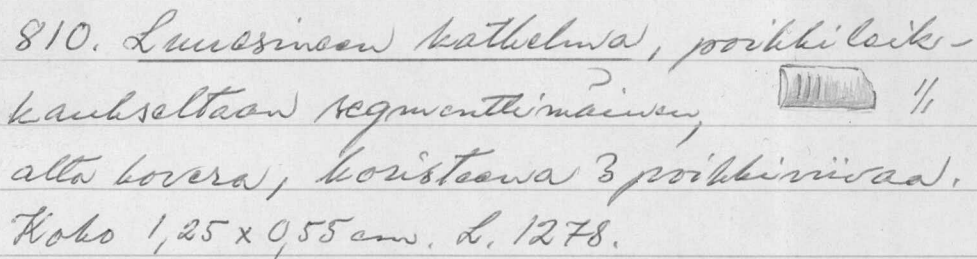 810. Luuesineen katkelma, poikkileik-
kaukseltaan segmenttimäinen, 1/1
alta kovera, koristeena 3 poikkiviivaa.
Koko 1,25 x 0,55 cm. L. 1278.